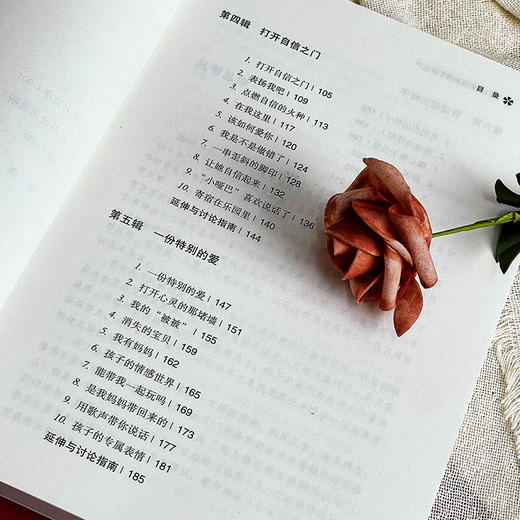 目 录
第四辑 打开自信之门
1. 打开自信之门 | 105
2. 表扬我吧 | 109
3. 点燃自信的火种 | 113
4. 在我这里 | 117
5. 该如何爱你 | 120
6. 我是不是做错了 | 124
7. 一串歪斜的脚印 | 128
8. 让她自信起来 | 132
9. “小哑巴”喜欢说话了 | 136
10. 寄宿在乐园里 | 140
延伸与讨论指南 | 144
第五辑 一份特别的爱
1. 一份特别的爱 | 147
2. 打开心灵的那堵墙 | 151
3. 我的“被被” | 155
4. 消失的宝贝 | 159
5. 我有妈妈 | 162
6. 孩子的情感世界 | 165
7. 能带我一起玩吗 | 169
8. 是我妈妈带回来的 | 173
9. 用歌声带你说话 | 177
10. 孩子的专属表情 | 181
延伸与讨论指南 | 185